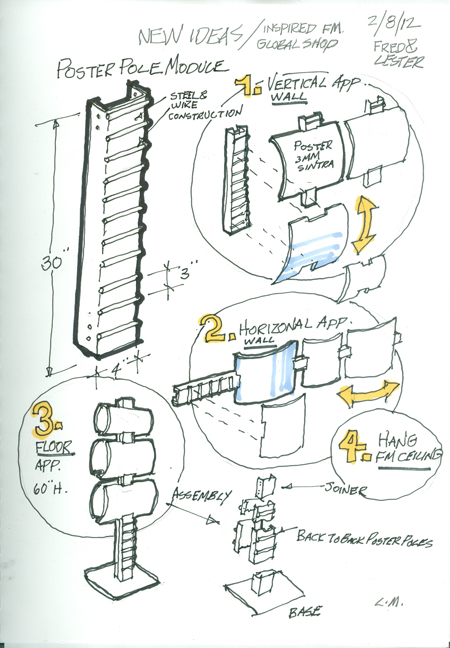 NEW IDEAS / INSPIRED FM.
GLOBAL SHOP
2/8/12
FRED &
LESTER
POSTER POLE MODULE
STEEL &
WIRE
CONSTRUCTION
30"
3"
4"
1. VERTICAL APP.
WALL
POSTER
3MM
SINTRA
2. HORIZONAL APP.
WALL
3.
FLOOR
APP.
60" H.
4. HANG
FM CEILING
ASSEMBLY
JOINER
BACK TO BACK POSTER POLES
BASE
L.M.